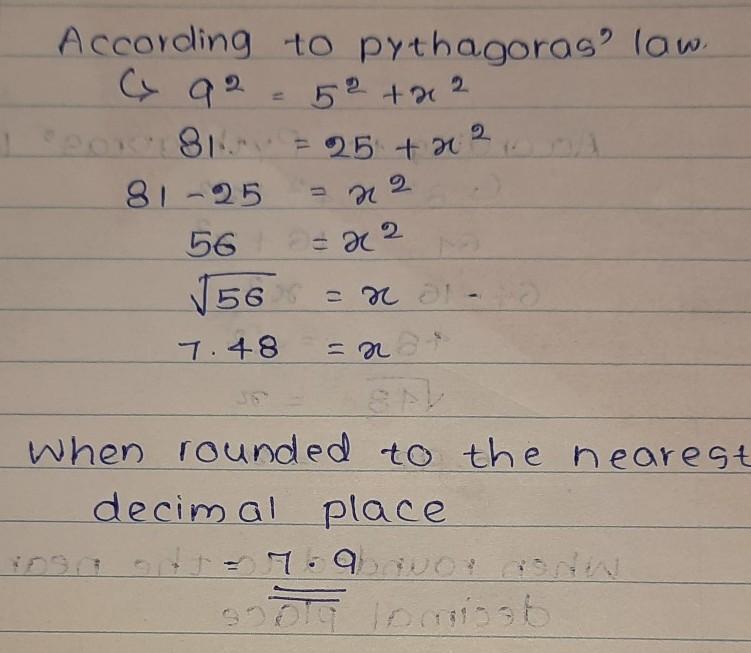 According to pythagoras' law.
↳ 9² = 5² + x²
81 = 25 + x²
81 - 25 = x²
56 = x²
√56 = x
7.48 = x
When rounded to the nearest
decimal place
= 7.9